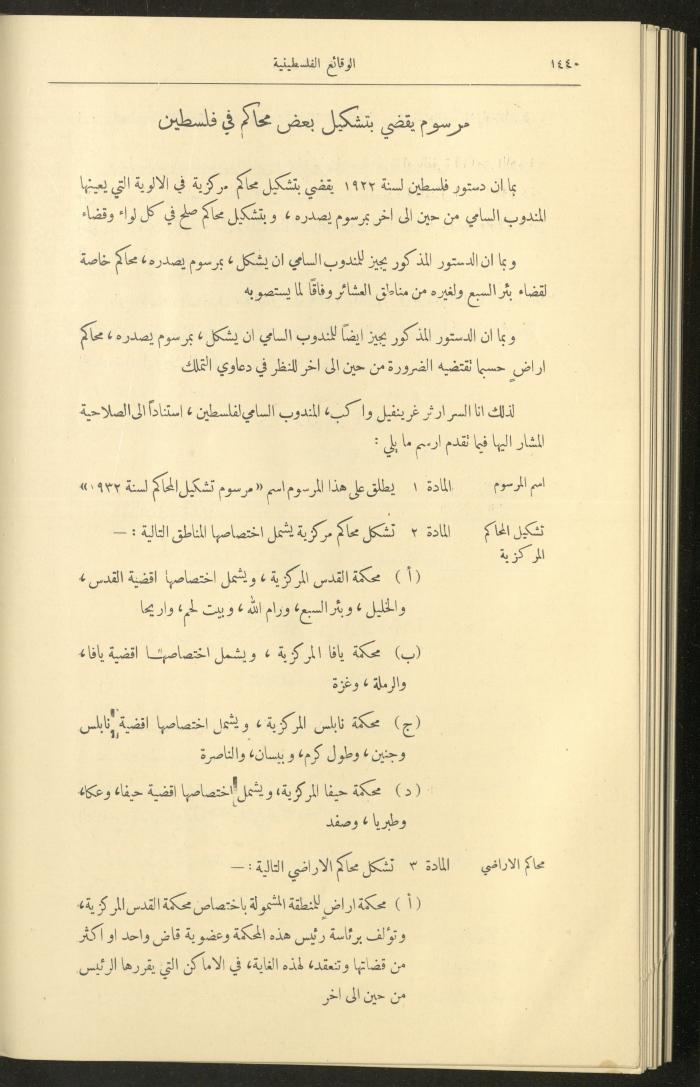 ١٤٤٠
الوقائع الفلسطينية
مرسوم يقضي بتشكيل بعض محاكم في فلسطين
بما ان دستور فلسطين لسنة ١٩٢٢ يقضي بتشكيل محاكم مركزية في الالوية التي يعينها
المندوب السامي من حين الى اخر بمرسوم يصدره ، وبتشكيل محاكم صلح في كل لواء وقضاء
وبما ان الدستور المذكور يجيز للمندوب السامي ان يشكل ، بمرسوم يصدره، محاكم خاصة
لقضاء بئر السبع ولغيره من مناطق العشائر وفاقًا لما يستصوبه
وبما ان الدستور المذكور يجيز ايضًا للمندوب السامي ان يشكل ، بمرسوم يصدره ، محاكم
اراضٍ حسبما تقتضيه الضرورة من حين الى اخر للنظر في دعاوي التملك
لذلك انا السر ارثر غرينفيل واكب، المندوب السامي لفلسطين ، استنادًا الى الصلاحية
المشار اليها فيما تقدم ارسم ما يلي :
اسم المرسوم
المادة ١ يطلق على هذا المرسوم اسم «مرسوم تشكيل المحاكم لسنة ١٩٣٢»
تشكيل المحاكم
المركزية
المادة ٢ تشكل محاكم مركزية يشمل اختصاصها المناطق التالية : —
(أ) محكمة القدس المركزية ، ويشمل اختصاصها اقضية القدس ،
والخليل ، وبئر السبع، ورام الله ، وبيت لحم، واريحا
(ب) محكمة يافا المركزية ، ويشمل اختصاصها اقضية يافا،
والرملة ، وغزة
(ج) محكمة نابلس المركزية ، ويشمل اختصاصها اقضية نابلس
وجنين ، وطول كرم، وبيسان، والناصرة
(د) محكمة حيفا المركزية، ويشمل اختصاصها اقضية حيفا، وعكا،
وطبريا ، وصفد
محاكم الاراضي
المادة ٣ تشكل محاكم الاراضي التالية : —
(أ) محكمة اراضٍ للمنطقة المشمولة باختصاص محكمة القدس المركزية،
وتؤلف برئاسة رئيس هذه المحكمة وعضوية قاض واحد او اكثر
من قضاتها وتنعقد، لهذه الغاية، في الاماكن التي يقررها الرئيس
من حين الى اخر